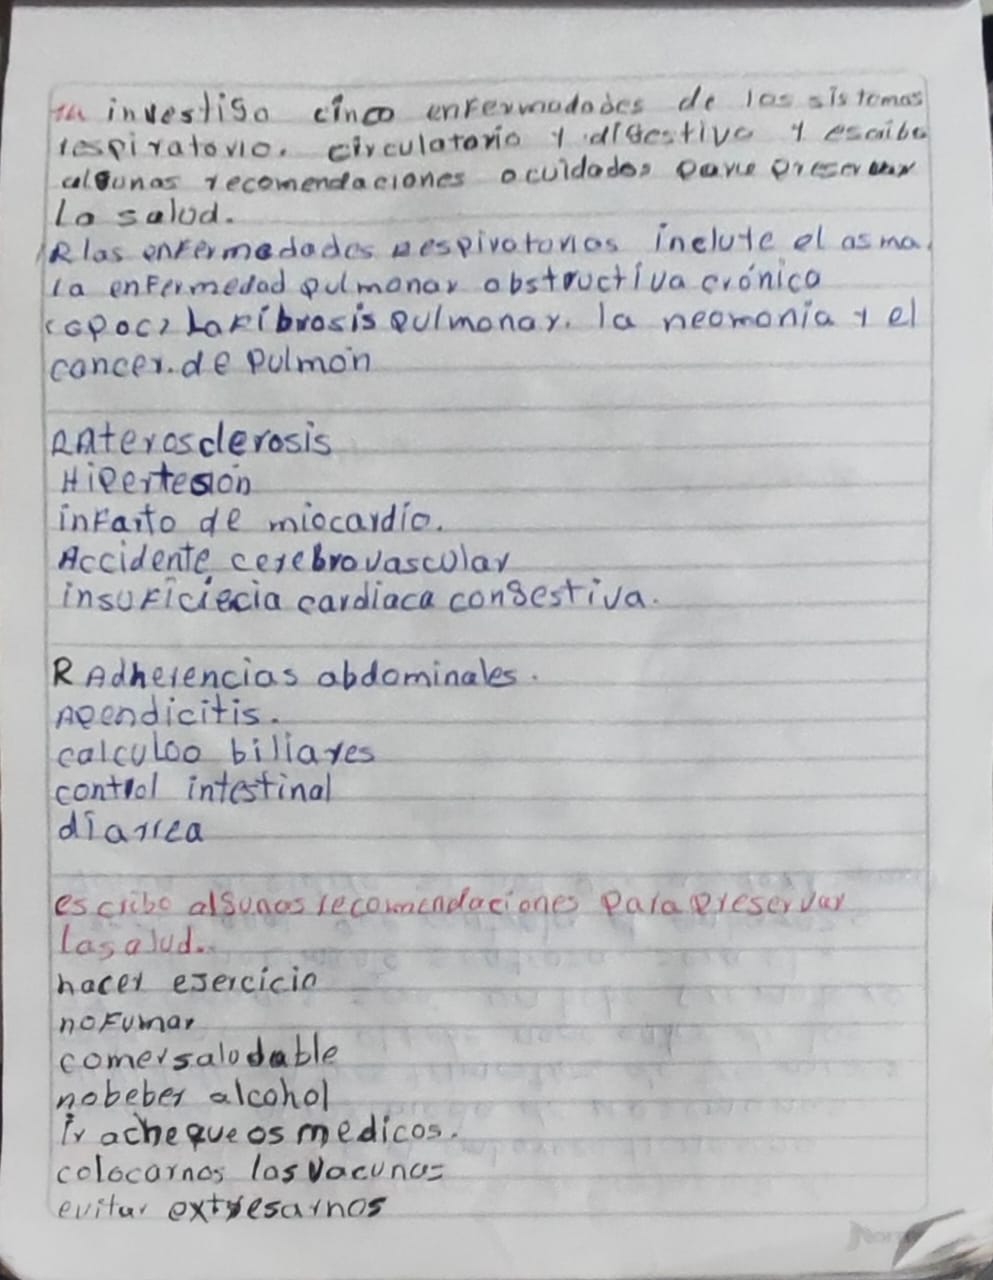 investigo cinco enfermedades de los sistemas
respiratorio. circulatorio y digestivo y escribo
algunas recomendaciones o cuidados para preservar
la salud.
R las enfermedades respiratorias inclute el asma.
la enfermedad pulmonar obstructiva crónica
(epoc) La fibrosis pulmonar. la neomonia y el
cancer. de pulmón
R Aterosclerosis
Hipertesión
infarto de miocardio.
Accidente cerebrovascular
insuficiecia cardiaca congestiva.
R Adherencias abdominales.
Apendicitis.
calculoo biliares
control intestinal
diarrea
escribo algunas recomendaciones para preservar
la salud.
hacer esercicio
no fumar
comer saludable
no beber alcohol
Ir a chequeos medicos.
colocarnos las vacunas
evitar extresarnos